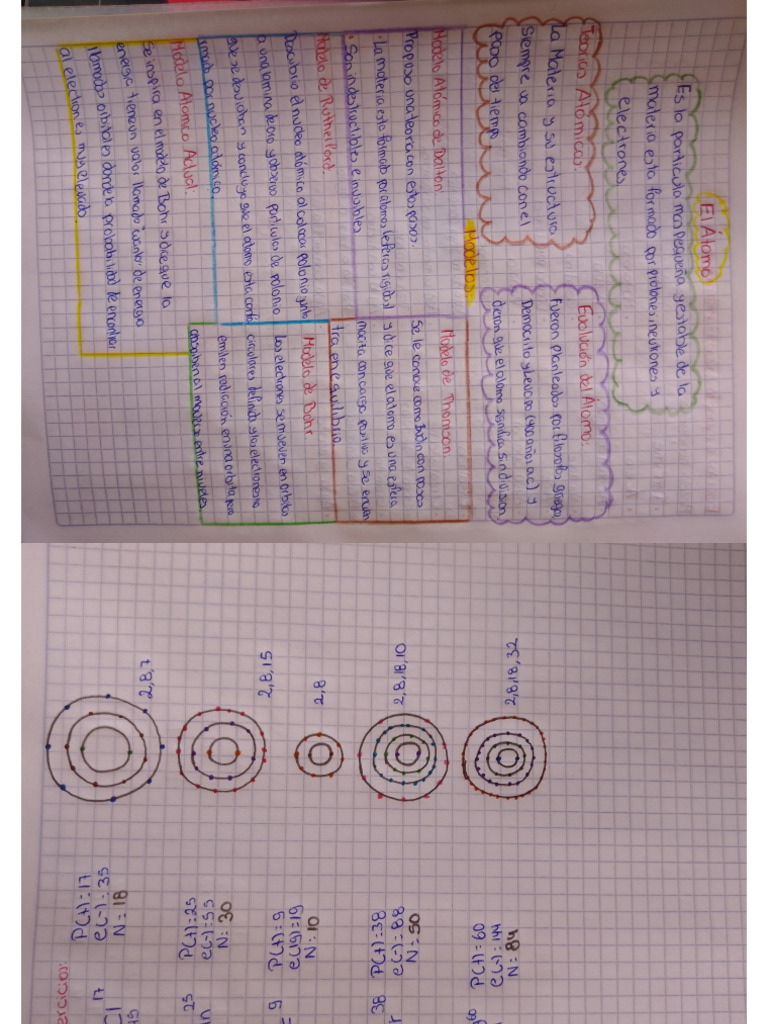 El Átomo
Es la partícula mas pequeña y estable de la
materia esta formado por protones, neutrones y
electrones
Teorica Atómicas:
La Materia y su estructura
Siempre va cambiando con el
paso de tiempo
Evolución del Átomo:
Fueron planteados por filosofos griegos
Democrito y Leucipo (400 años a.c) y
dieron que el atomo significa sin division.
Modelos:
Modelo Atómico de Dalton:
Propuso una teoria con estos pasos:
· La materia esta formada por atomos (esferas rigidas)
· Son indestructibles e invisibles
Modelo de Thomson:
Se le conoce como Budin con pasas
y dice que el atomo es una esfera
maciza con carga positiva y se encuen
tra en equilibrio
Modelo de Rutherford:
Descubrio el nucleo atómico al colocar polonio junto
a una lamina de oro y observo particulas de polonio
que se desviaban y concluye que el atomo esta confo
rmado por nucleo atómico.
Modelo de Bohr
Los electrones se mueven en orbitas
circulares definida y los electrones no
emiten radiación en una orbita pero
absorben al moverse entre niveles
Modelo Atomico Actual:
Se inspira en el modelo de Bohr y dice que la
energia tiene un valor llamado cuanto de energia
llamados orbitales donde la probabilidad de encontrar
al electron es muy elevado.
ercicios:
Cl 17
P(+)=17
e(-)=35
N=18
2,8,7
25
P(+)=25
e(-)=55
N=30
2,8,15
9
P(+)=9
e(19)=19
N:10
2,8
38
P(+)=38
e(-)=88
N=50
2,8,18,10
P(+)=60
e(-)=144
N=84
2,8,18,32